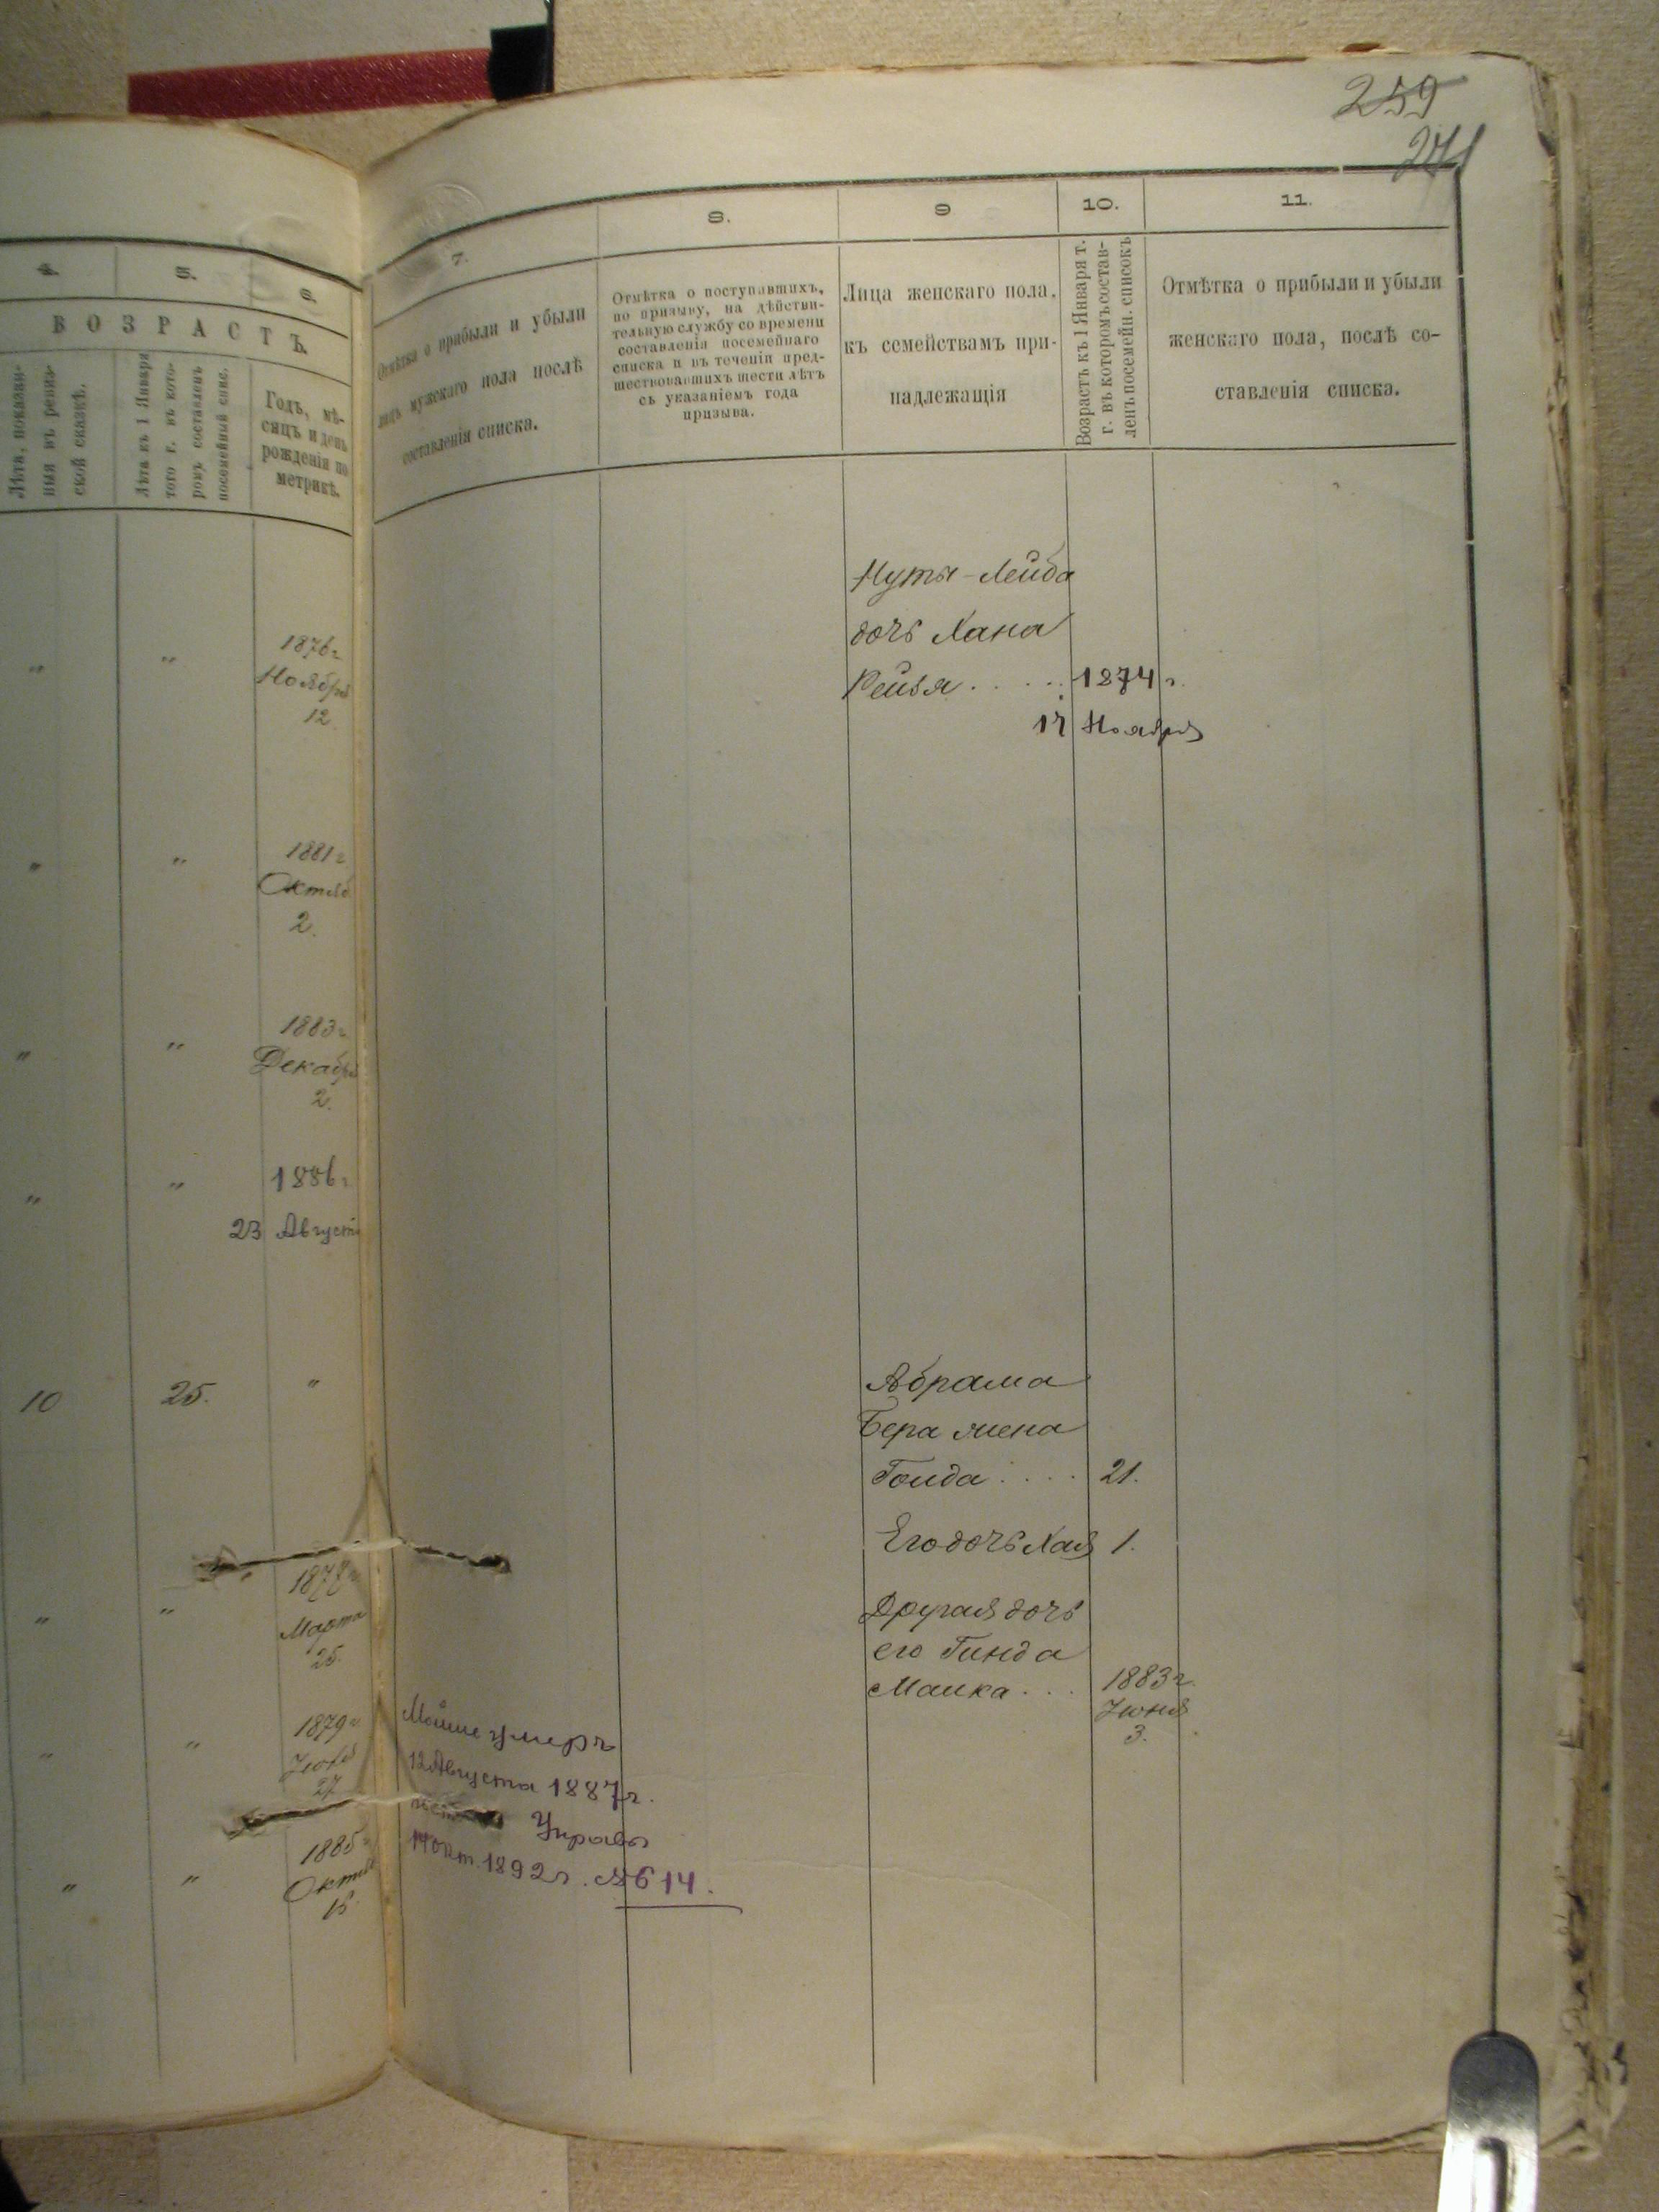 259
271
4.
5.
6.
ВОЗРАСТЪ.
Лѣта, показан-
ныя въ ревиз-
ской сказкѣ.
Лѣта къ 1 Января
того г. въ кото-
ромъ составленъ
посемейный спис.
Годъ, мѣ-
сяцъ и день
рожденія по
метрикѣ.
1876 г
Ноября
12
1881 г
Октяб
2.
1883 г
Декабря
2.
1886 г
23 Августа
10 25. "
187
Марта
25.
1879 г
27
1885 г
Октяб
15.
7.
Отмѣтка о прибыли и убыли
лицъ мужскаго пола послѣ
составленія списка.
Мойше умеръ
12 Августа 1887 г.
Управы
14 окт. 1892 г. № 614.
8.
Отмѣтка о поступившихъ,
по призыву, на дѣйстви-
тельную службу со времени
составленія посемейнаго
списка и въ теченіи пред-
шествовавшихъ шести лѣтъ
съ указаніемъ года
призыва.
9
Лица женскаго пола,
къ семействамъ при-
надлежащія
10.
Возрастъ къ 1 Января т.
г. въ которомъ состав-
ленъ посемейн. списокъ
11.
Отмѣтка о прибыли и убыли
женскаго пола, послѣ со-
ставленія списка.
Нуты-Лейба
дочь Хана
Рейзя . . . . . 1874 г.
17 Ноября
Абрама
Бера жена
Голда . . . . 21.
Его дочь Хая 1.
Другая дочь
его Гинда
Малка . . . 1883 г.
Іюня
3.